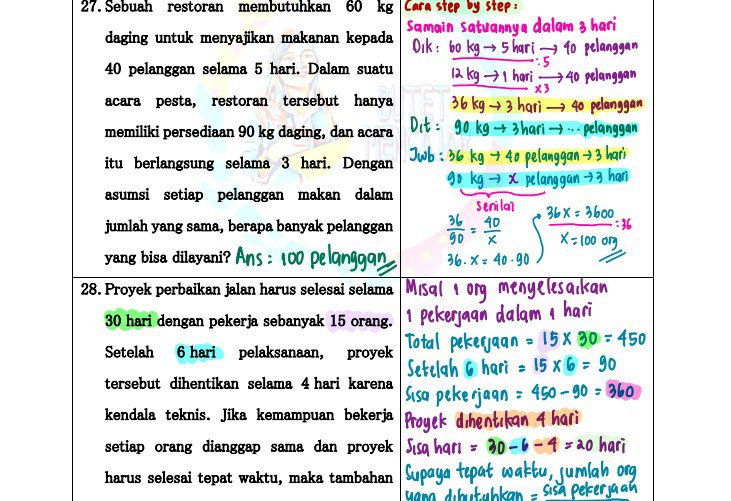 27. Sebuah restoran membutuhkan 60 kg
daging untuk menyajikan makanan kepada
40 pelanggan selama 5 hari. Dalam suatu
acara pesta, restoran tersebut hanya
memiliki persediaan 90 kg daging, dan acara
itu berlangsung selama 3 hari. Dengan
asumsi setiap pelanggan makan dalam
jumlah yang sama, berapa banyak pelanggan
yang bisa dilayani? Ans : 100 pelanggan
Cara step by step :
Samain satuannya dalam 3 hari
Dik : 60 kg → 5 hari → 40 pelanggan
:5
12 kg → 1 hari → 40 pelanggan
x3
36 kg → 3 hari → 40 pelanggan
Dit : 90 kg → 3 hari → ... pelanggan
Jwb : 36 kg → 40 pelanggan → 3 hari
90 kg → x pelanggan → 3 hari
senilai
36/90 = 40/x
36 . x = 40 . 90
36x = 3600
:36
x = 100 org
28. Proyek perbaikan jalan harus selesai selama
30 hari dengan pekerja sebanyak 15 orang.
Setelah 6 hari pelaksanaan, proyek
tersebut dihentikan selama 4 hari karena
kendala teknis. Jika kemampuan bekerja
setiap orang dianggap sama dan proyek
harus selesai tepat waktu, maka tambahan
Misal 1 org menyelesaikan
1 pekerjaan dalam 1 hari
Total pekerjaan = 15 x 30 = 450
Setelah 6 hari = 15 x 6 = 90
Sisa pekerjaan = 450 - 90 = 360
Proyek dihentikan 4 hari
Sisa hari = 30 - 6 - 4 = 20 hari
Supaya tepat waktu, jumlah org
yang dibutuhkan = sisa pekerjaan